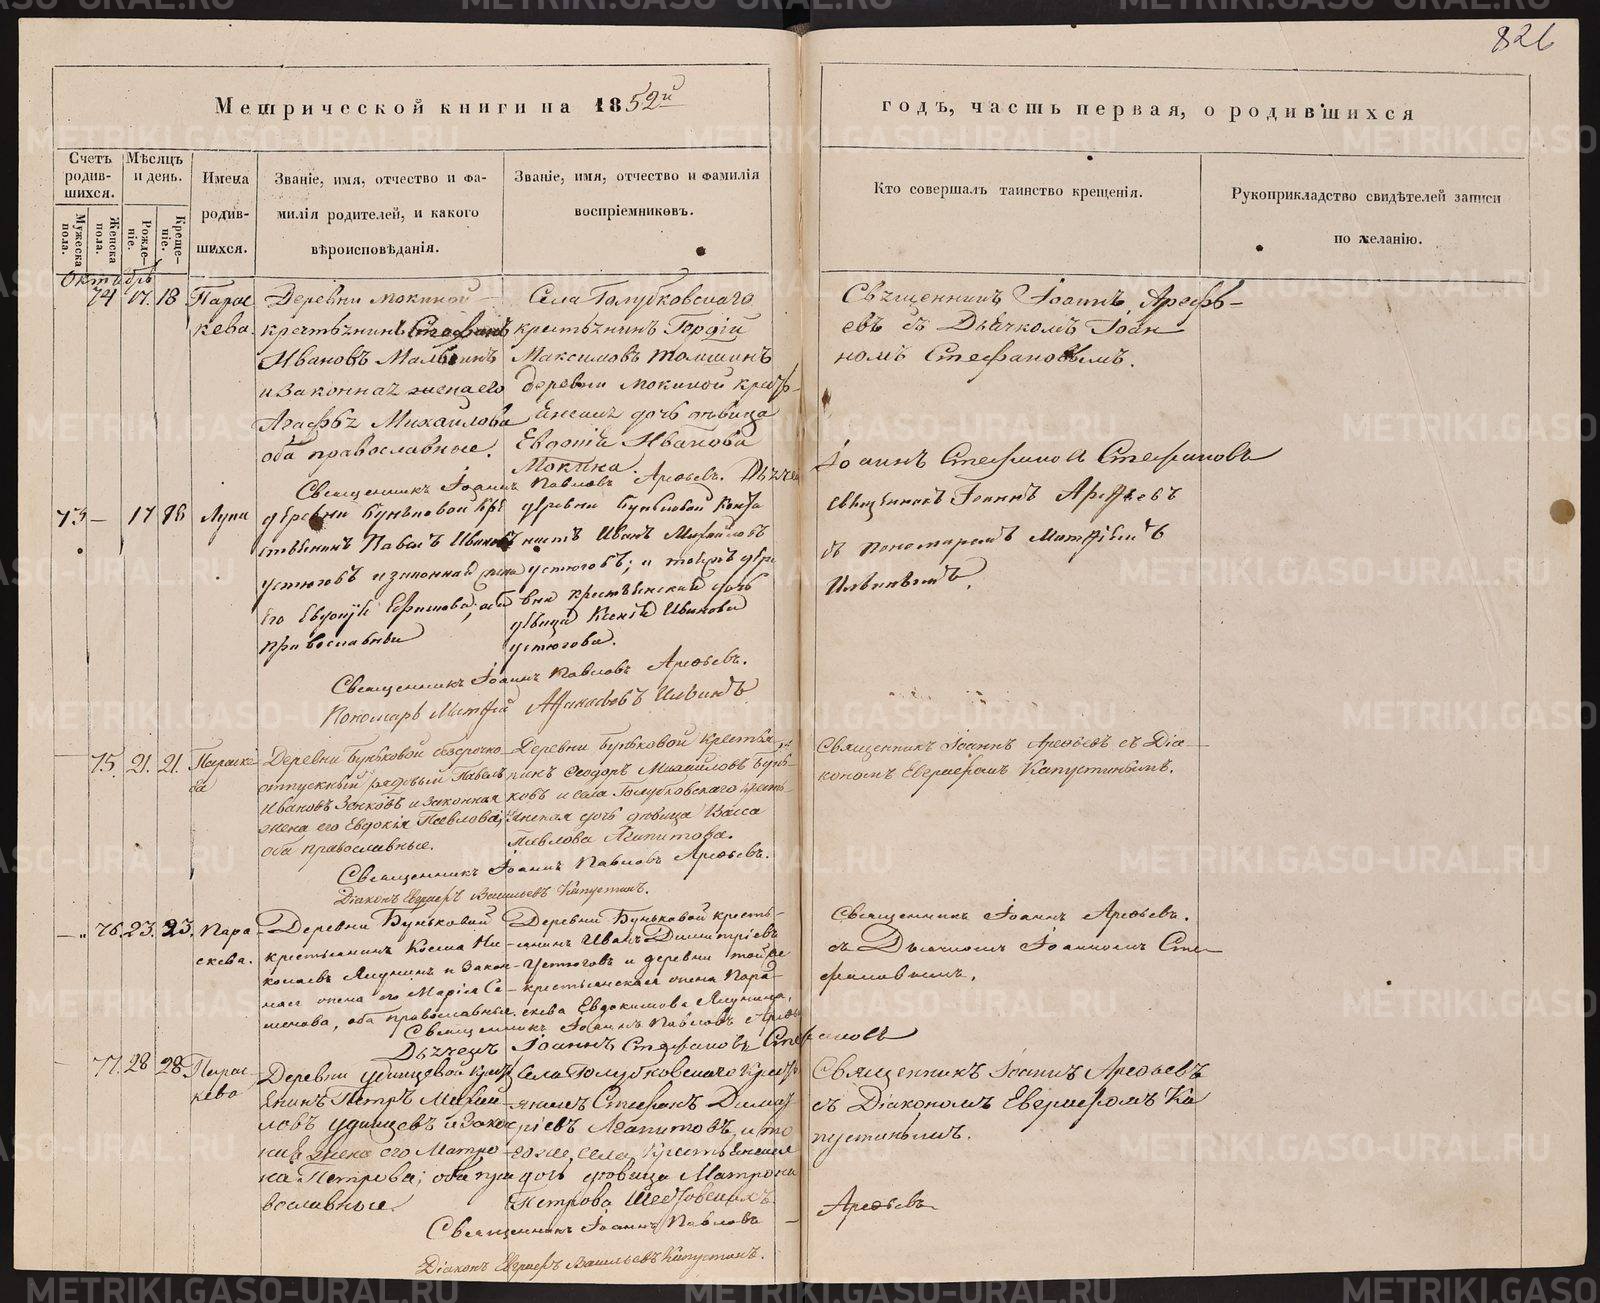 826
Метрической книги на 1852й
годъ, часть первая, о родившихся
Счетъ родив-шихся.
Мужеска пола.
Женска пола.
Мѣсяцъ и день.
Рожде-ніе.
Креще-ніе.
Имена
родив-
шихся.
Званіе, имя, отчество и фа-
милія родителей, и какого
вѣроисповѣданія.
Званіе, имя, отчество и фамилія
воспріемниковъ.
Кто совершалъ таинство крещенія.
Рукоприкладство свидѣтелей записи
по желанію.
Октябрь
74 17. 18
Парас
кева.
Деревни Мокиной
крестьянинъ Стефанъ
Ивановъ
и законная жена его
Агафья Михаилова
оба православные.
Села Голубковскаго
крестьянинъ Гордій
Максимовъ
деревни Мокиной кресть-
янская дочь дѣвица
Евдокія Иванова
Мокина.
Священникъ Іоаннъ Арефь-
евъ съ Дьячкомъ Іоан
номъ Стефановымъ.
Священникъ Іоаннъ Павловъ Арефьевъ. Дьячекъ
Іоаннъ Стефановъ Стефановъ
73 — 17 18
Лука
деревни Буньковой кре
стьянинъ Павелъ Ивановъ
Устюговъ и законная жена
его Евдокія Ефимова, оба
православные
деревни Буньковой
Иванъ Михайловъ
Устюговъ; и той же дере
вни крестьянская дочь
дѣвица Ксенія Иванова
Устюгова.
священникъ Іоаннъ Арефьевъ
съ пономаремъ Матфіемъ
Ильинымъ.
Священникъ Іоаннъ Павловъ Арефьевъ.
Пономарь Матфій Афанасьевъ Ильинъ
75. 21. 21.
Параске
ва
Деревни Буньковой безсрочно
отпускный рядовый Павелъ
Ивановъ Зенковъ и законная
жена его Евдокія Павлова,
оба православные.
Деревни Буньковой крестья
нинъ Ѳеодоръ Михаиловъ Бунь
ковъ и села Голубковскаго кресть-
янская дочь дѣвица Васса
Павлова Агапитова.
Священникъ Іоаннъ Арефьевъ съ Діа-
кономъ Евгмефомъ Капустинымъ.
Священникъ Іоаннъ Павловъ Арефьевъ.
Діаконъ Васильевъ Капустинъ.
— „ 76. 23. 23.
Пара
скева.
Деревни Буньковой
крестьянинъ Косма Ни-
колаевъ Ялунинъ и закон-
ная жена его Марія Се-
менова, оба православные.
Деревни Буньковой кресть-
янинъ Иванъ Димитріевъ
Устюговъ и деревни той же
крестьянская жена Пара-
скева Евдокимова Ялунина.
Священникъ Іоаннъ Арефьевъ.
съ Дьячкомъ Іоанномъ Сте-
фановымъ.
Священникъ Іоаннъ Павловъ Арефь
Дьячекъ Іоаннъ Стефановъ Стефановъ
— 77. 28 28
Парас
кева
Деревни Удинцевой крест
янинъ Петръ Михай
ловъ Удинцевъ и закон
ная жена его Матро
на Петрова; оба пра
вославные.
Села Голубковскаго крест
янинъ Стефанъ Димит
ріевъ Агапитовъ, и то
го же села крестьянская
дочь дѣвица Матрона
Петрова
Священникъ Іоаннъ Арефьевъ
съ Діакономъ Ка
пустинымъ.
Священникъ Іоаннъ Павловъ — Арефьевъ
Діаконъ Васильевъ Капустинъ.